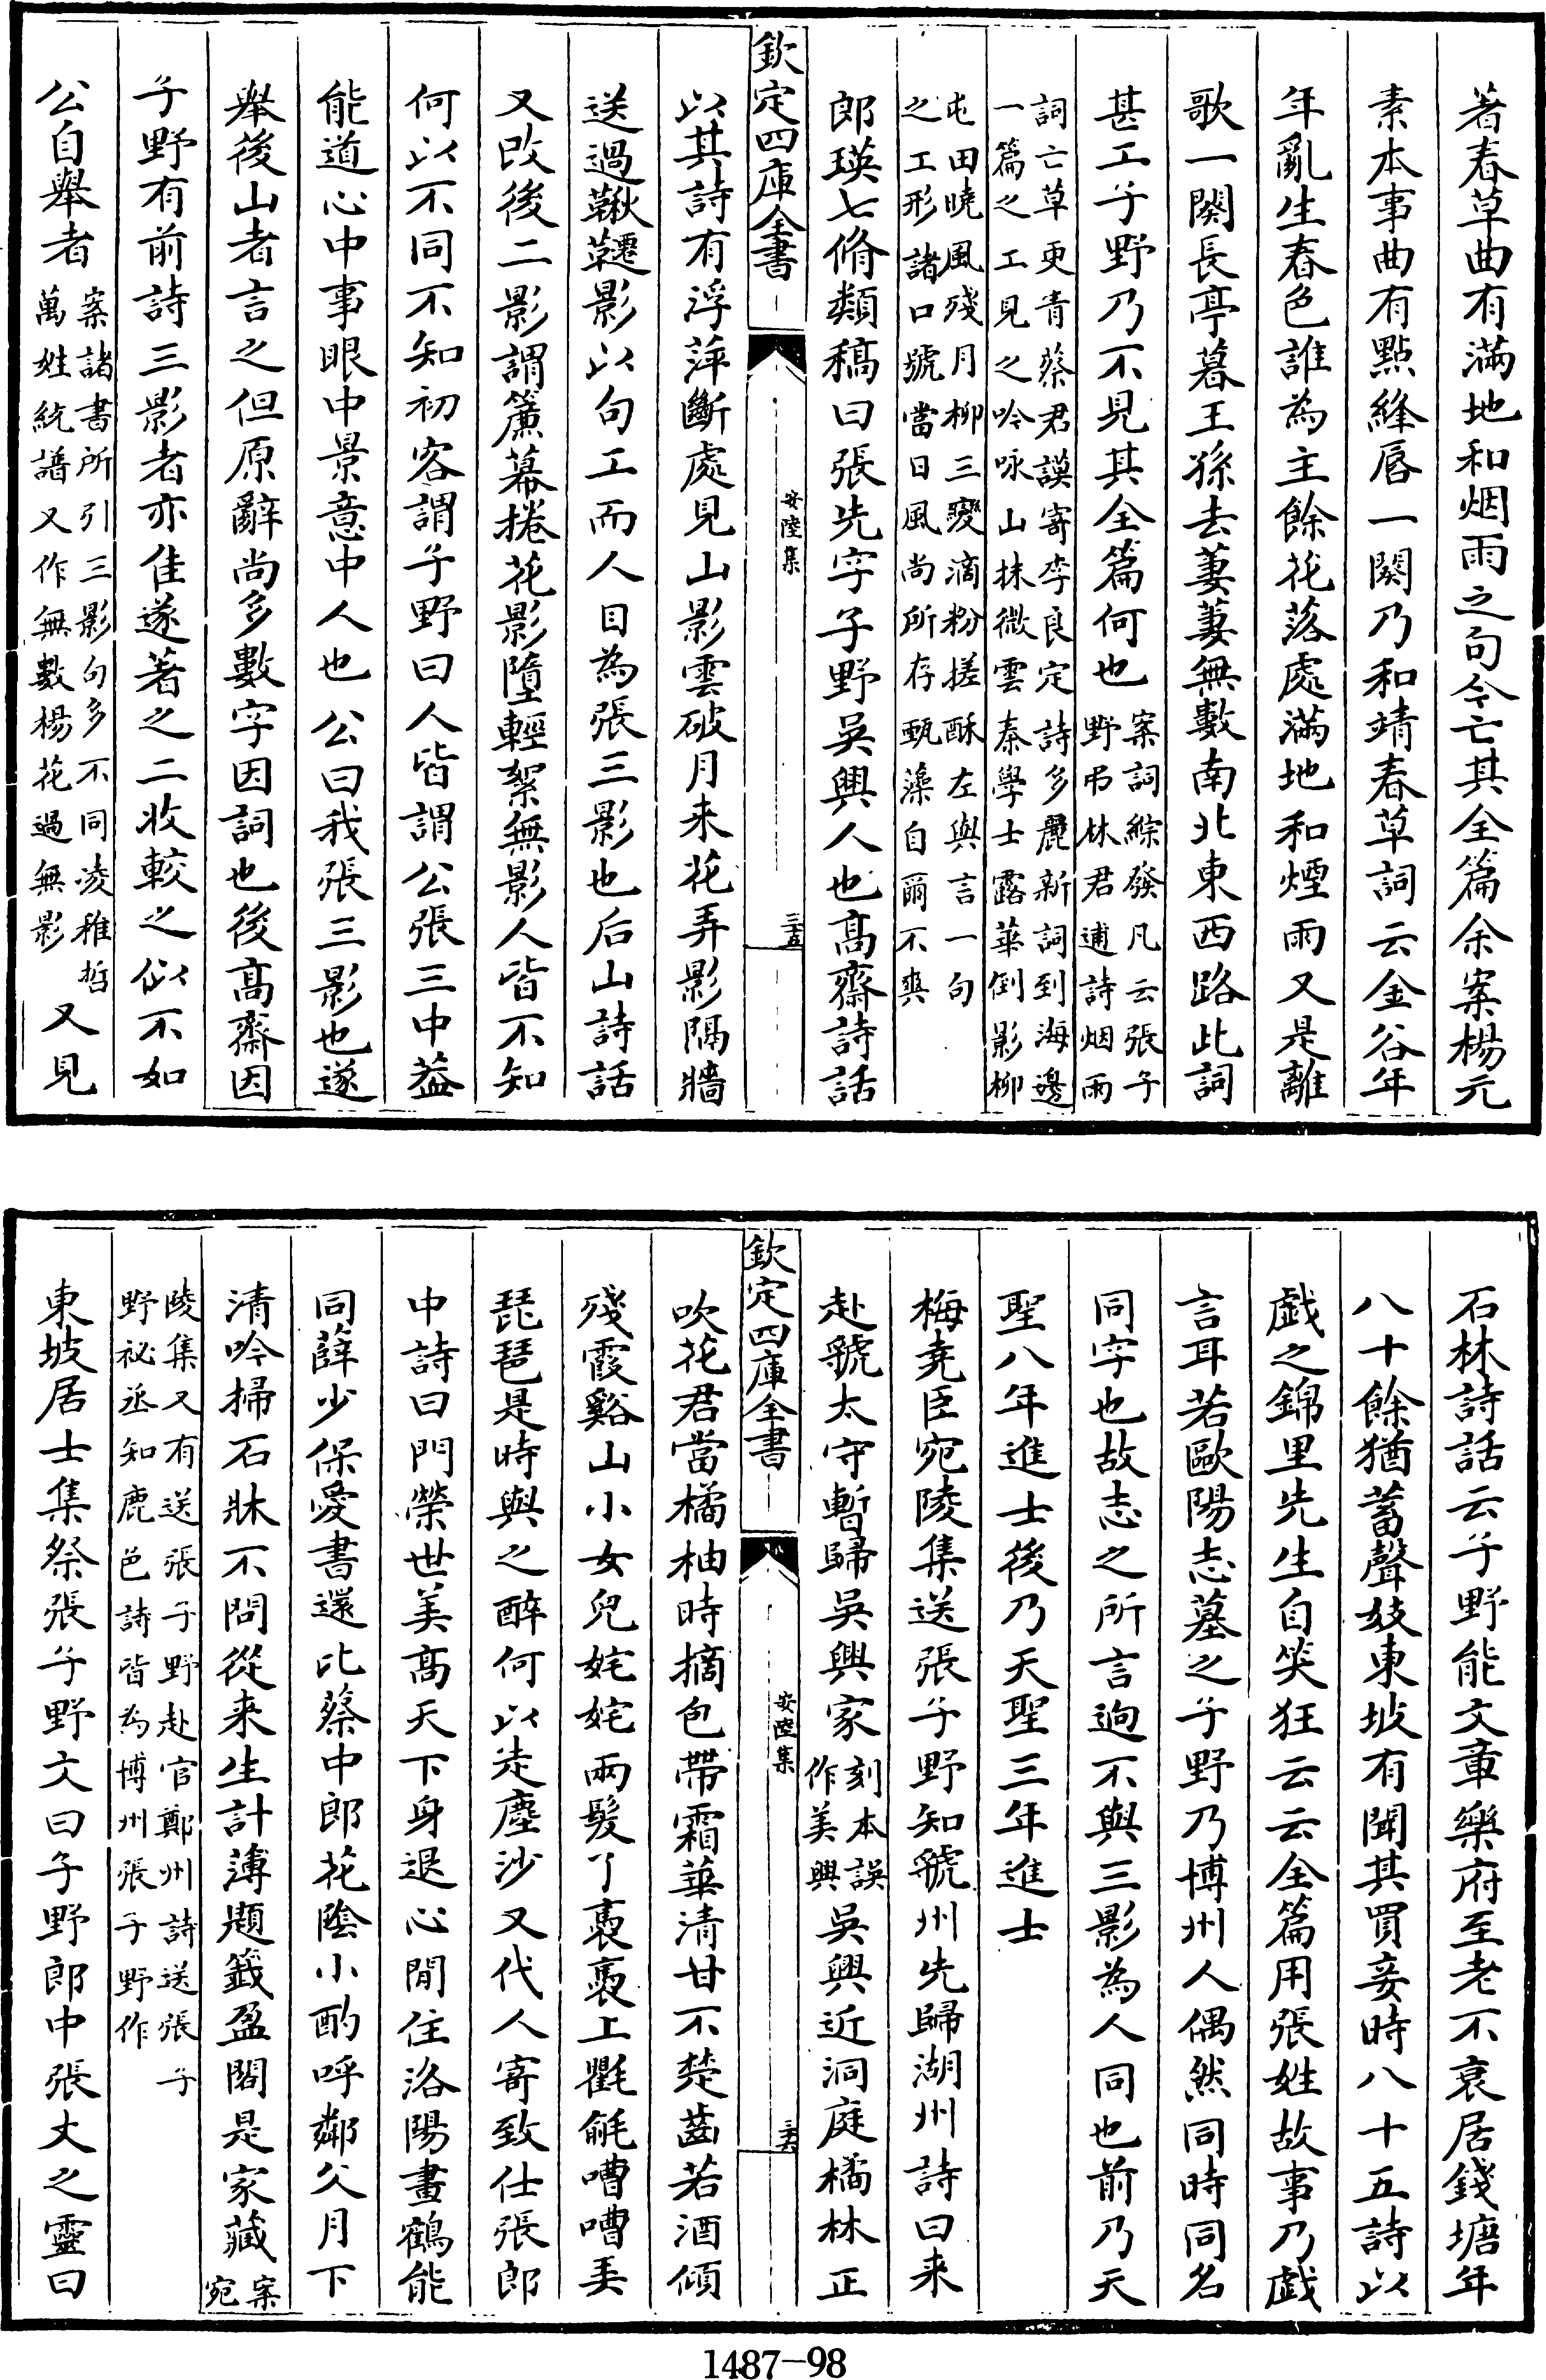 著春草曲有滿地和烟雨之句今亡其全篇余案楊元
素本事曲有點絳唇一闋乃和靖春草詞云金谷年
年亂生春色誰為主餘花落處滿地和煙雨又是離
歌一闋長亭暮王孫去萋萋無數南北東西路此詞
甚工子野乃不見其全篇何也案詞綜發凡云張子
野弔林君逋詩烟雨
詞亡草更青蔡君謨寄李良定詩多麗新詞到海邊
一篇之工見之吟咏山抹微雲秦學士露華倒影柳
屯田曉風殘月柳三變滴粉搓酥左與言一句
之工形諸口號當日風尚所存甄藻自爾不爽
郎瑛七脩類稿曰張先字子野吳興人也高齋詩話
欽定四庫全書
安陸集
三十五
以其詩有浮萍斷處見山影雲破月來花弄影隔牆
送過鞦韆影以句工而人目為張三影也后山詩話
又改後二影謂簾幕捲花影墮輕絮無影人皆不知
何以不同不知初客謂子野曰人皆謂公張三中葢
能道心中事眼中景意中人也公曰我張三影也遂
舉後山者言之但原辭尚多數字因詞也後高齋因
子野有前詩三影者亦佳遂著之二收較之似不如
公自舉者案諸書所引三影句多不同凌稚哲
萬姓統譜又作無數楊花過無影又見
石林詩話云子野能文章樂府至老不衰居錢塘年
八十餘猶蓄聲妓東坡有聞其買妾時八十五詩以
戲之錦里先生自笑狂云云全篇用張姓故事乃戲
言耳若歐陽志墓之子野乃博州人偶然同時同名
同字也故志之所言逈不與三影為人同也前乃天
聖八年進士後乃天聖三年進士
梅堯臣宛陵集送張子野知虢州先歸湖州詩曰来
赴虢太守暫歸吳興家刻本誤
作美興吳興近洞庭橘林正
欽定四庫全書
安陸集
三十六
吹花君當橘柚時摘包帶霜華清甘不楚齒若酒傾
殘霞谿山小女兒姹姹兩髮丫裹裹上氍毹嘈嘈弄
琵琶是時與之醉何以走塵沙又代人寄致仕張郎
中詩曰門榮世美高天下身退心閒住洛陽畫鶴能
同薛少保愛書還比蔡中郎花陰小酌呼鄰父月下
清吟掃石牀不問從来生計薄題籤盈閣是家藏案
宛
陵集又有送張子野赴官鄭州詩送張子
野祕丞知鹿邑詩皆為博州張子野作
東坡居士集祭張子野文曰子野郎中張丈之靈曰
1487-98